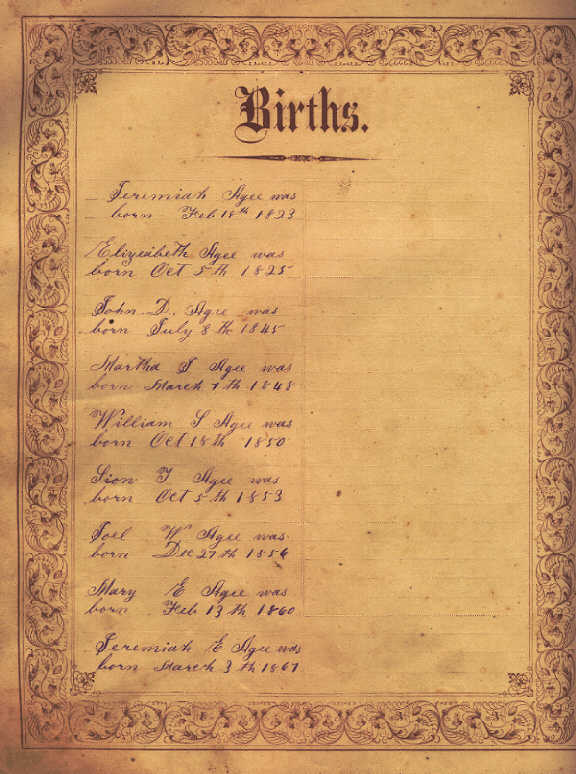 Births.
Jeremiah Agee was
born Feb 18th 1823
Elizeabeth Agee was
born Oct 5th 1825
John D. Agee was
born July 8th 1845
Martha J Agee was
born March 7th 1848
William S Agee was
born Oct 18th 1850
Sion T Agee was
born Oct 5th 1853
Joel W Agee was
born Dec 27th 1856
Mary E Agee was
born Feb 13th 1860
Jeremiah E Agee was
born March 3th 1867